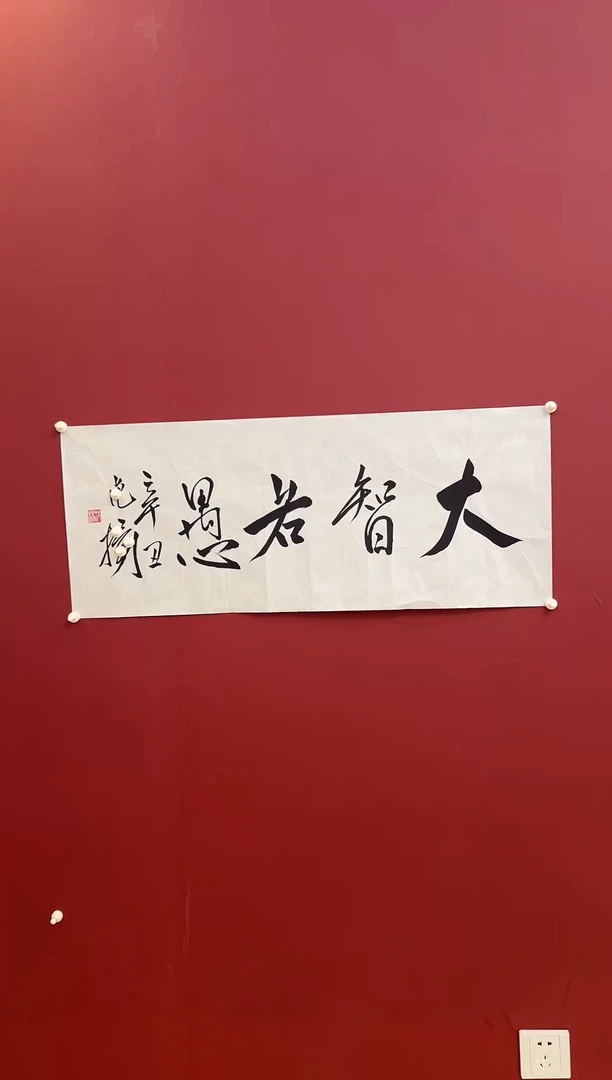 大智若愚
辛丑